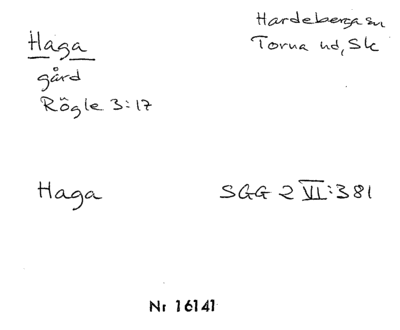 Haga
gård
Rögle 3:17
Hardeberga sn
Torna hd, Sk
Haga
SGG 2 VI:381
Nr 16141